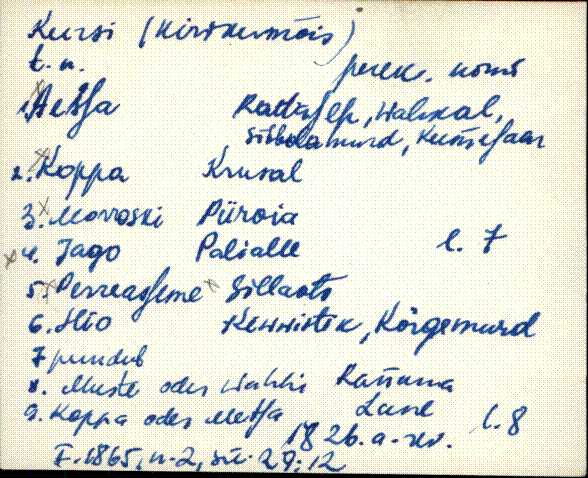 Kursi (Kirikumõis)
t. n. perek. nimi
1. Aetsa Radasepp, Walnal,
Sibbolamurd, Kuusesaar
2. Koppa Krusal
3. Morroski Püroia
4. Jago Palialle l. 7
5. Perreasseme Sillaots
6. Hio Kennistik, Kõrgemurd
7 puudub
8. Muste oder Wahhi Rañuma
9. Koppa oder Metsa Lane l. 8
1826. a. rev.
F. 1865, n. 2, sü. 29; 12